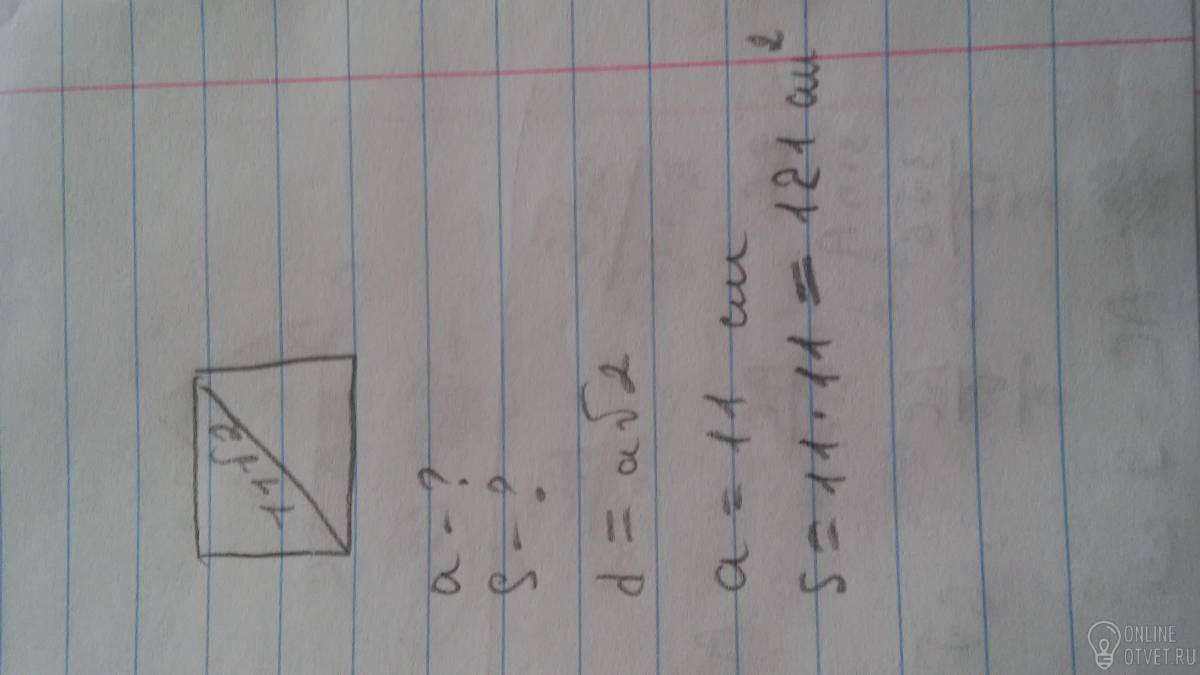 11√2
a - ?
S - ?
d = a√2
a = 11 см
S = 11 · 11 = 121 см²
ONLINE
OTVET.RU